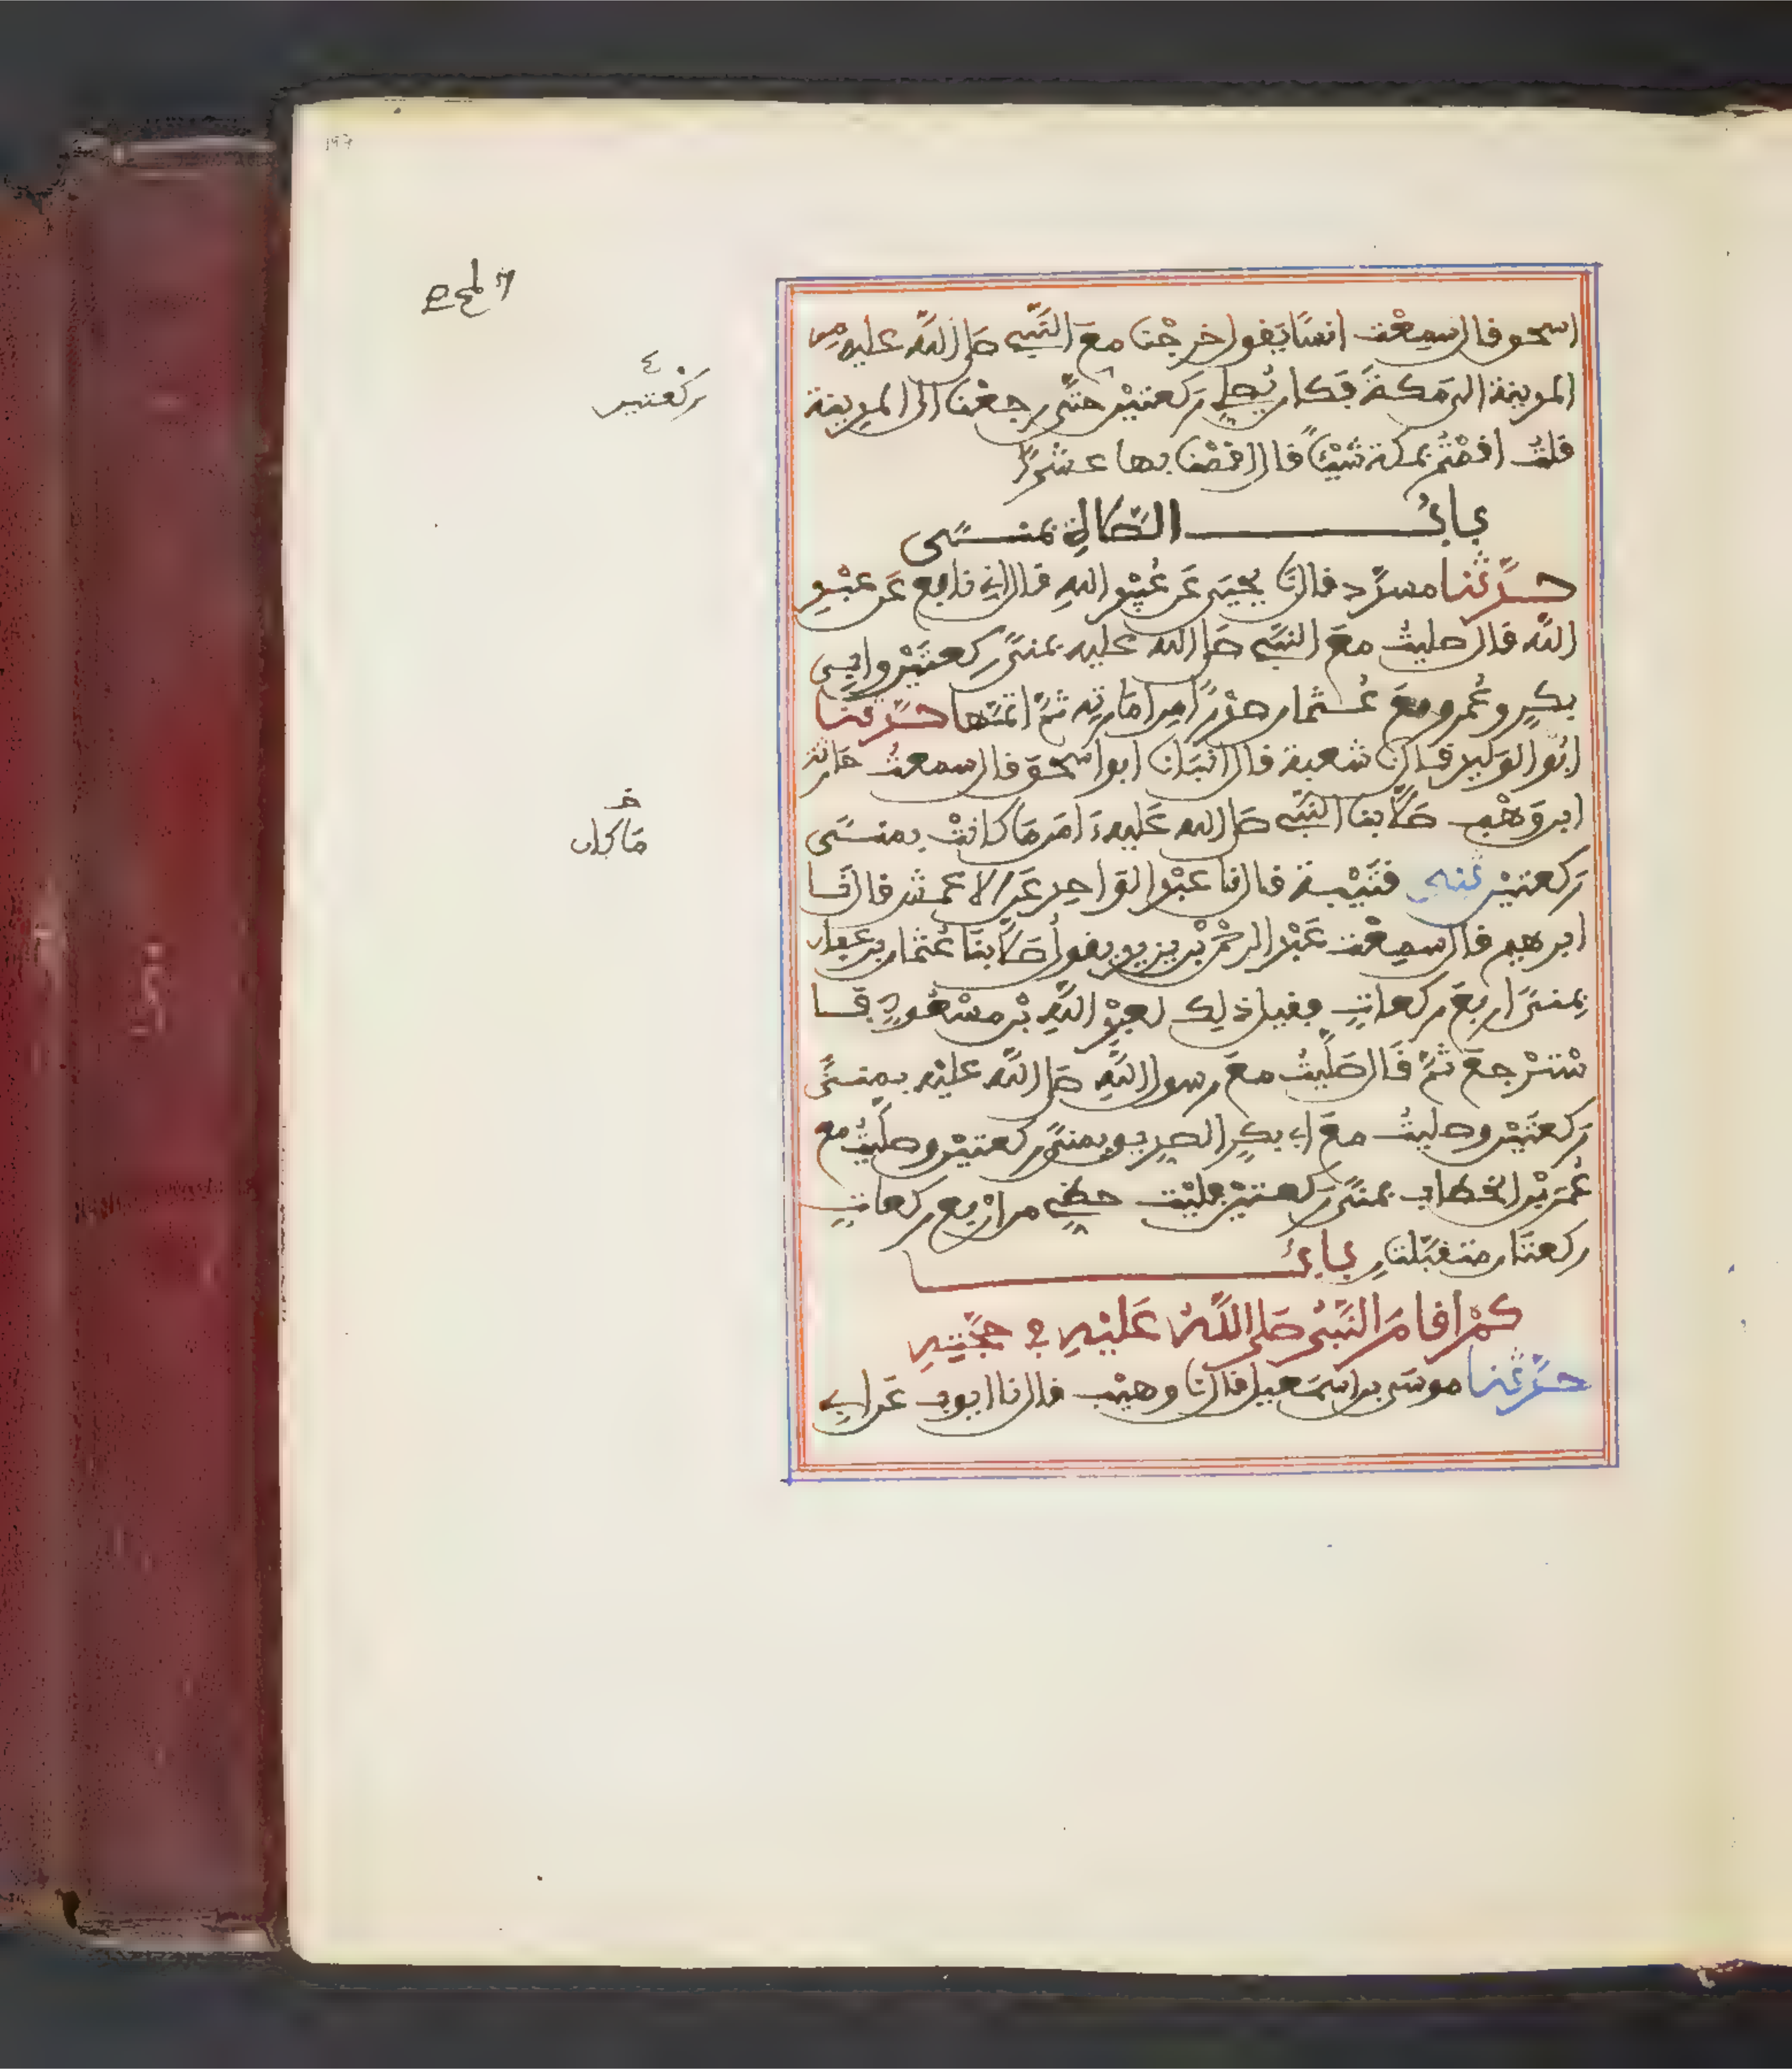 اسحق قال سمعت انسًا يقول خرجْنا معَ النَّبِي صلى اللَّه عليه مِن
المدينة الى مكةَ فكان يُصلي رَكعتيْن حتَّى رجعْنا الى المدينة
قلتُ اقمْتُم بمكة شيْئًا قال اقمْنا بها عشْرًا
بابُ الصَّلاة بمنًى
حدَّثنا مسدَّد قال نَا يحيَى عَن عُبيْد اللهِ قال اني نافع عَن عبْدِ
اللَّه قال صليتُ معَ النبَّي صلى الله عليه بمنىً ركعتيْن وابِي
بكرٍ وعُمر ومعَ عُثمان صدْرًا مِن امَارته ثمَّ اتمَّها حدَّثنا
ابُو الوَليد قال نَا شعبة قال انبَانا ابو اسحق قال سمعتُ حارثة
ابن وَهْب صلَّى بنا النَّبِي صلى الله عَليه ءَامَن مَا كانتْ بمنًى
رَكعتيْن ثنى قتَيْبة قال نا عبْد الوَاحِد عَن الاعمش قال نَا
ابرهيم قال سمِعْت عَبْد الرحْمٰن بْن يزيد يقولُ صلَّى بنَا عُثمان بن عفان
بمنىً اربعَ ركعاتٍ فقيل ذلك لعبْدِ اللَّهِ بْن مسْعُودٍ فا
سْترْجعَ ثمَّ قَال صَلَّيتُ معَ رسول اللَّهِ صلى اللَّه عليْه بمِنىً
رَكعتَيْن وصليتُ معَ ابي بكرٍ الصِديق بمنىً ركعتيْن وصلَّيتُ مع
عُمَرَ بْن الخطاب بمنىً ركعتيْن فليْت حظِي من ارْبع ركعاتٍ
ركعتَان متقبَّلتانِ بابُ
كمْ اقامَ النَّبىُ صَلى اللَّهُ عَليْهِ في حجَّتِهِ
حدَّثنا موسَى بن اسمَعيل قال نَا وهيْب قال نا ايوب عَن ابي
ع
رَكْعتير
خ
مَا كان